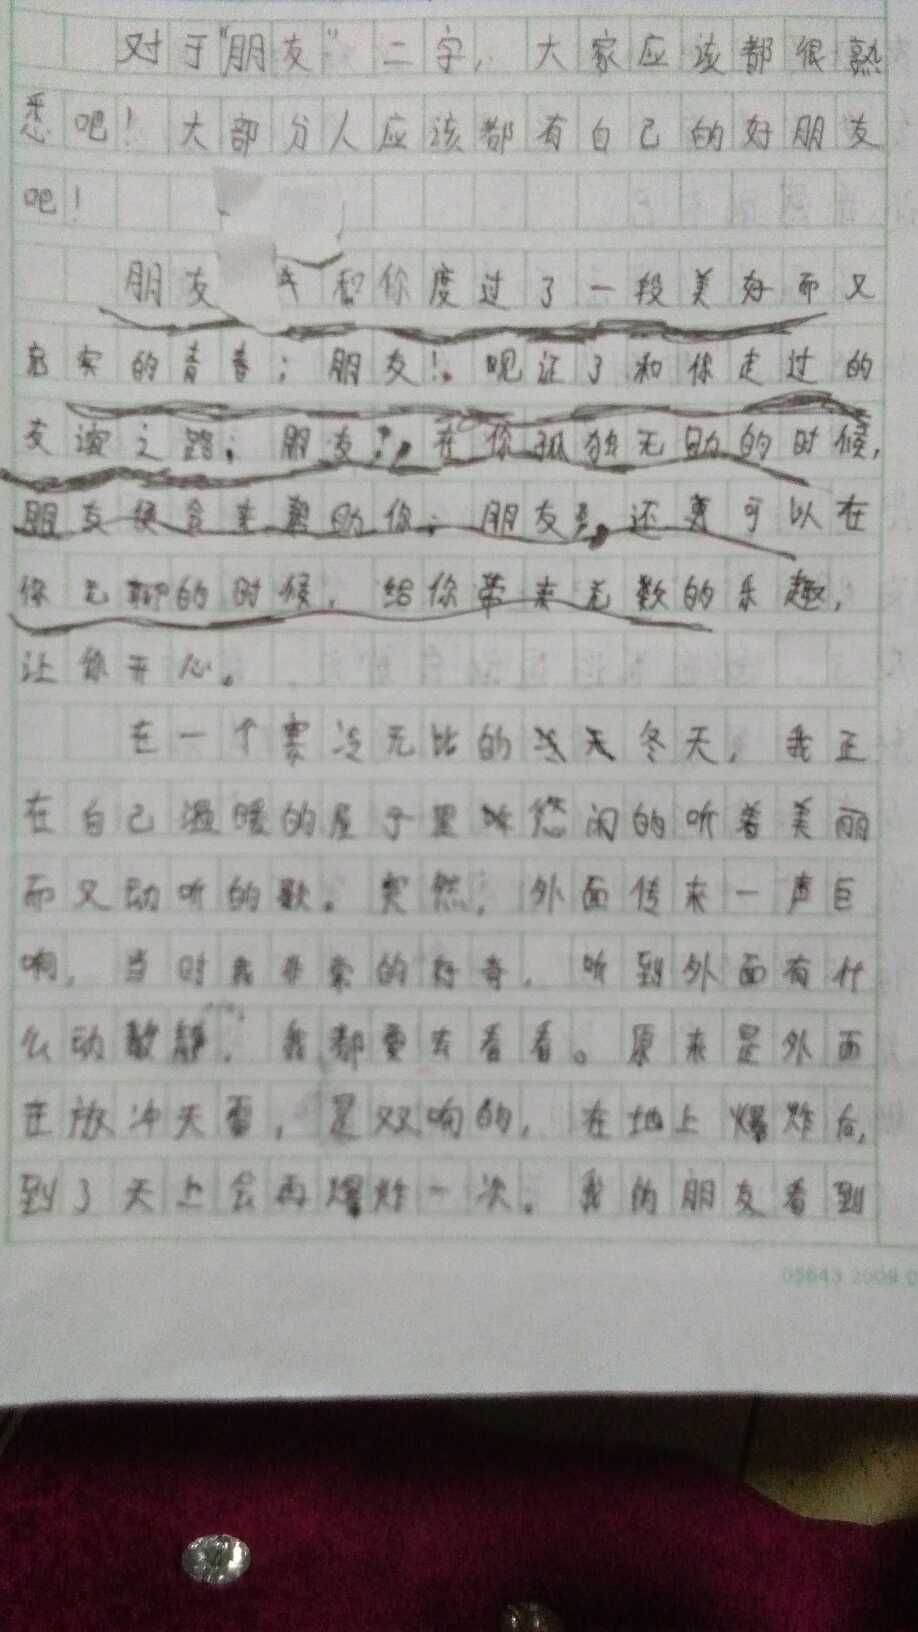 对于"朋友"二字，大家应该都很熟
悉吧！大部分人应该都有自己的好朋友
吧！
朋友 和你度过了一段美好而又
充实的青春；朋友！。见证了和你走过的
友谊之路；朋友！。在你孤独无助的时候，
朋友便会来帮助你；朋友 ，还更可以在
你无聊的时候，给你带来无数的乐趣，
让你开心。
在一个寒冷无比的 天冬天，我正
在自己温暖的屋子里 悠闲的听着美丽
而又动听的歌。突然，外面传来一声巨
响，当时我非常的好奇，听到外面有什
么动 静，我都要去看看。原来是外面
在放冲天雷，是双响的，在地上爆炸后，
到了天上会再爆炸一次。我的朋友看到
05643 2009.0